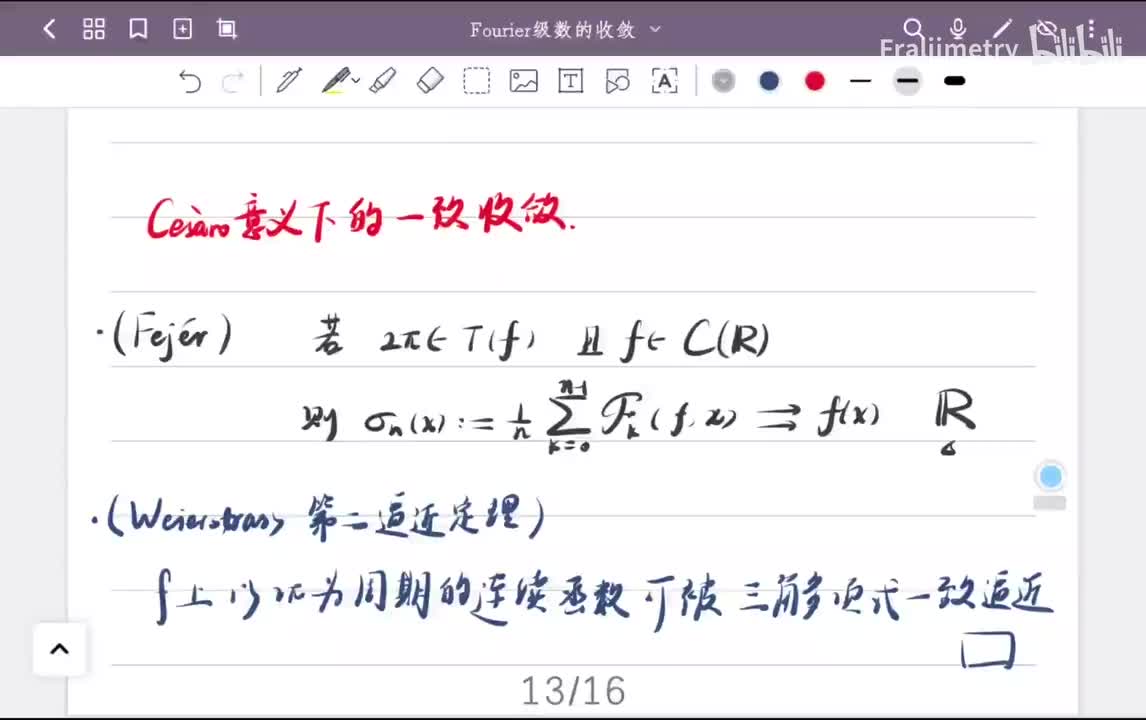 Fourier级数的收敛
Eraliimetry bilibili
Cesàro意义下的一致收敛.
·(Fejér) 若 2π∈T(f) 且 f∈C(R)
则 σₙ(x):=1/n ∑_{k=0}^{n-1} ℱₖ(f,x) ⇉ f(x) R
·(Weierstrass 第二逼近定理)
上以2π为周期的连续函数可被三角多项式一致逼近
□
13/16